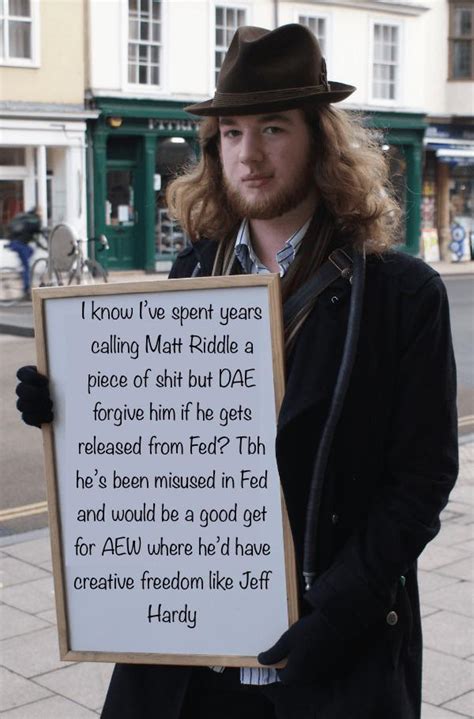 I know I've spent years
calling Matt Riddle a
piece of shit but DAE
forgive him if he gets
released from Fed? Tbh
he's been misused in Fed
and would be a good get
for AEW where he'd have
creative freedom like Jeff
Hardy